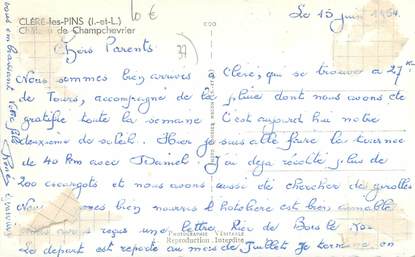 CLÉRÉ-les-PINS (I.-et-L.)
Château de Champchevrier
10 €
37
Le 15 juin 1954.
Chers Parents
Nous sommes bien arrivés à Cléré, qui se trouve à 27 Km
de Tours, accompagné de la pluie dont nous avons été
gratifié toute la semaine. C'est aujourd'hui notre
deuxième de soleil. Hier je suis allé faire la tournée
de 40 km avec Daniel. J'ai déjà récolté plus de
200 escargots et nous avons aussi été chercher des girolles
Nous sommes bien nourris l'hôtelière est bien aimable
Nous avons reçus une lettre
Le départ est reporté au mois de Juillet. Je termine en
vous embrassant
PHOTOGRAPHIE VÉRITABLE
Reproduction Interdite